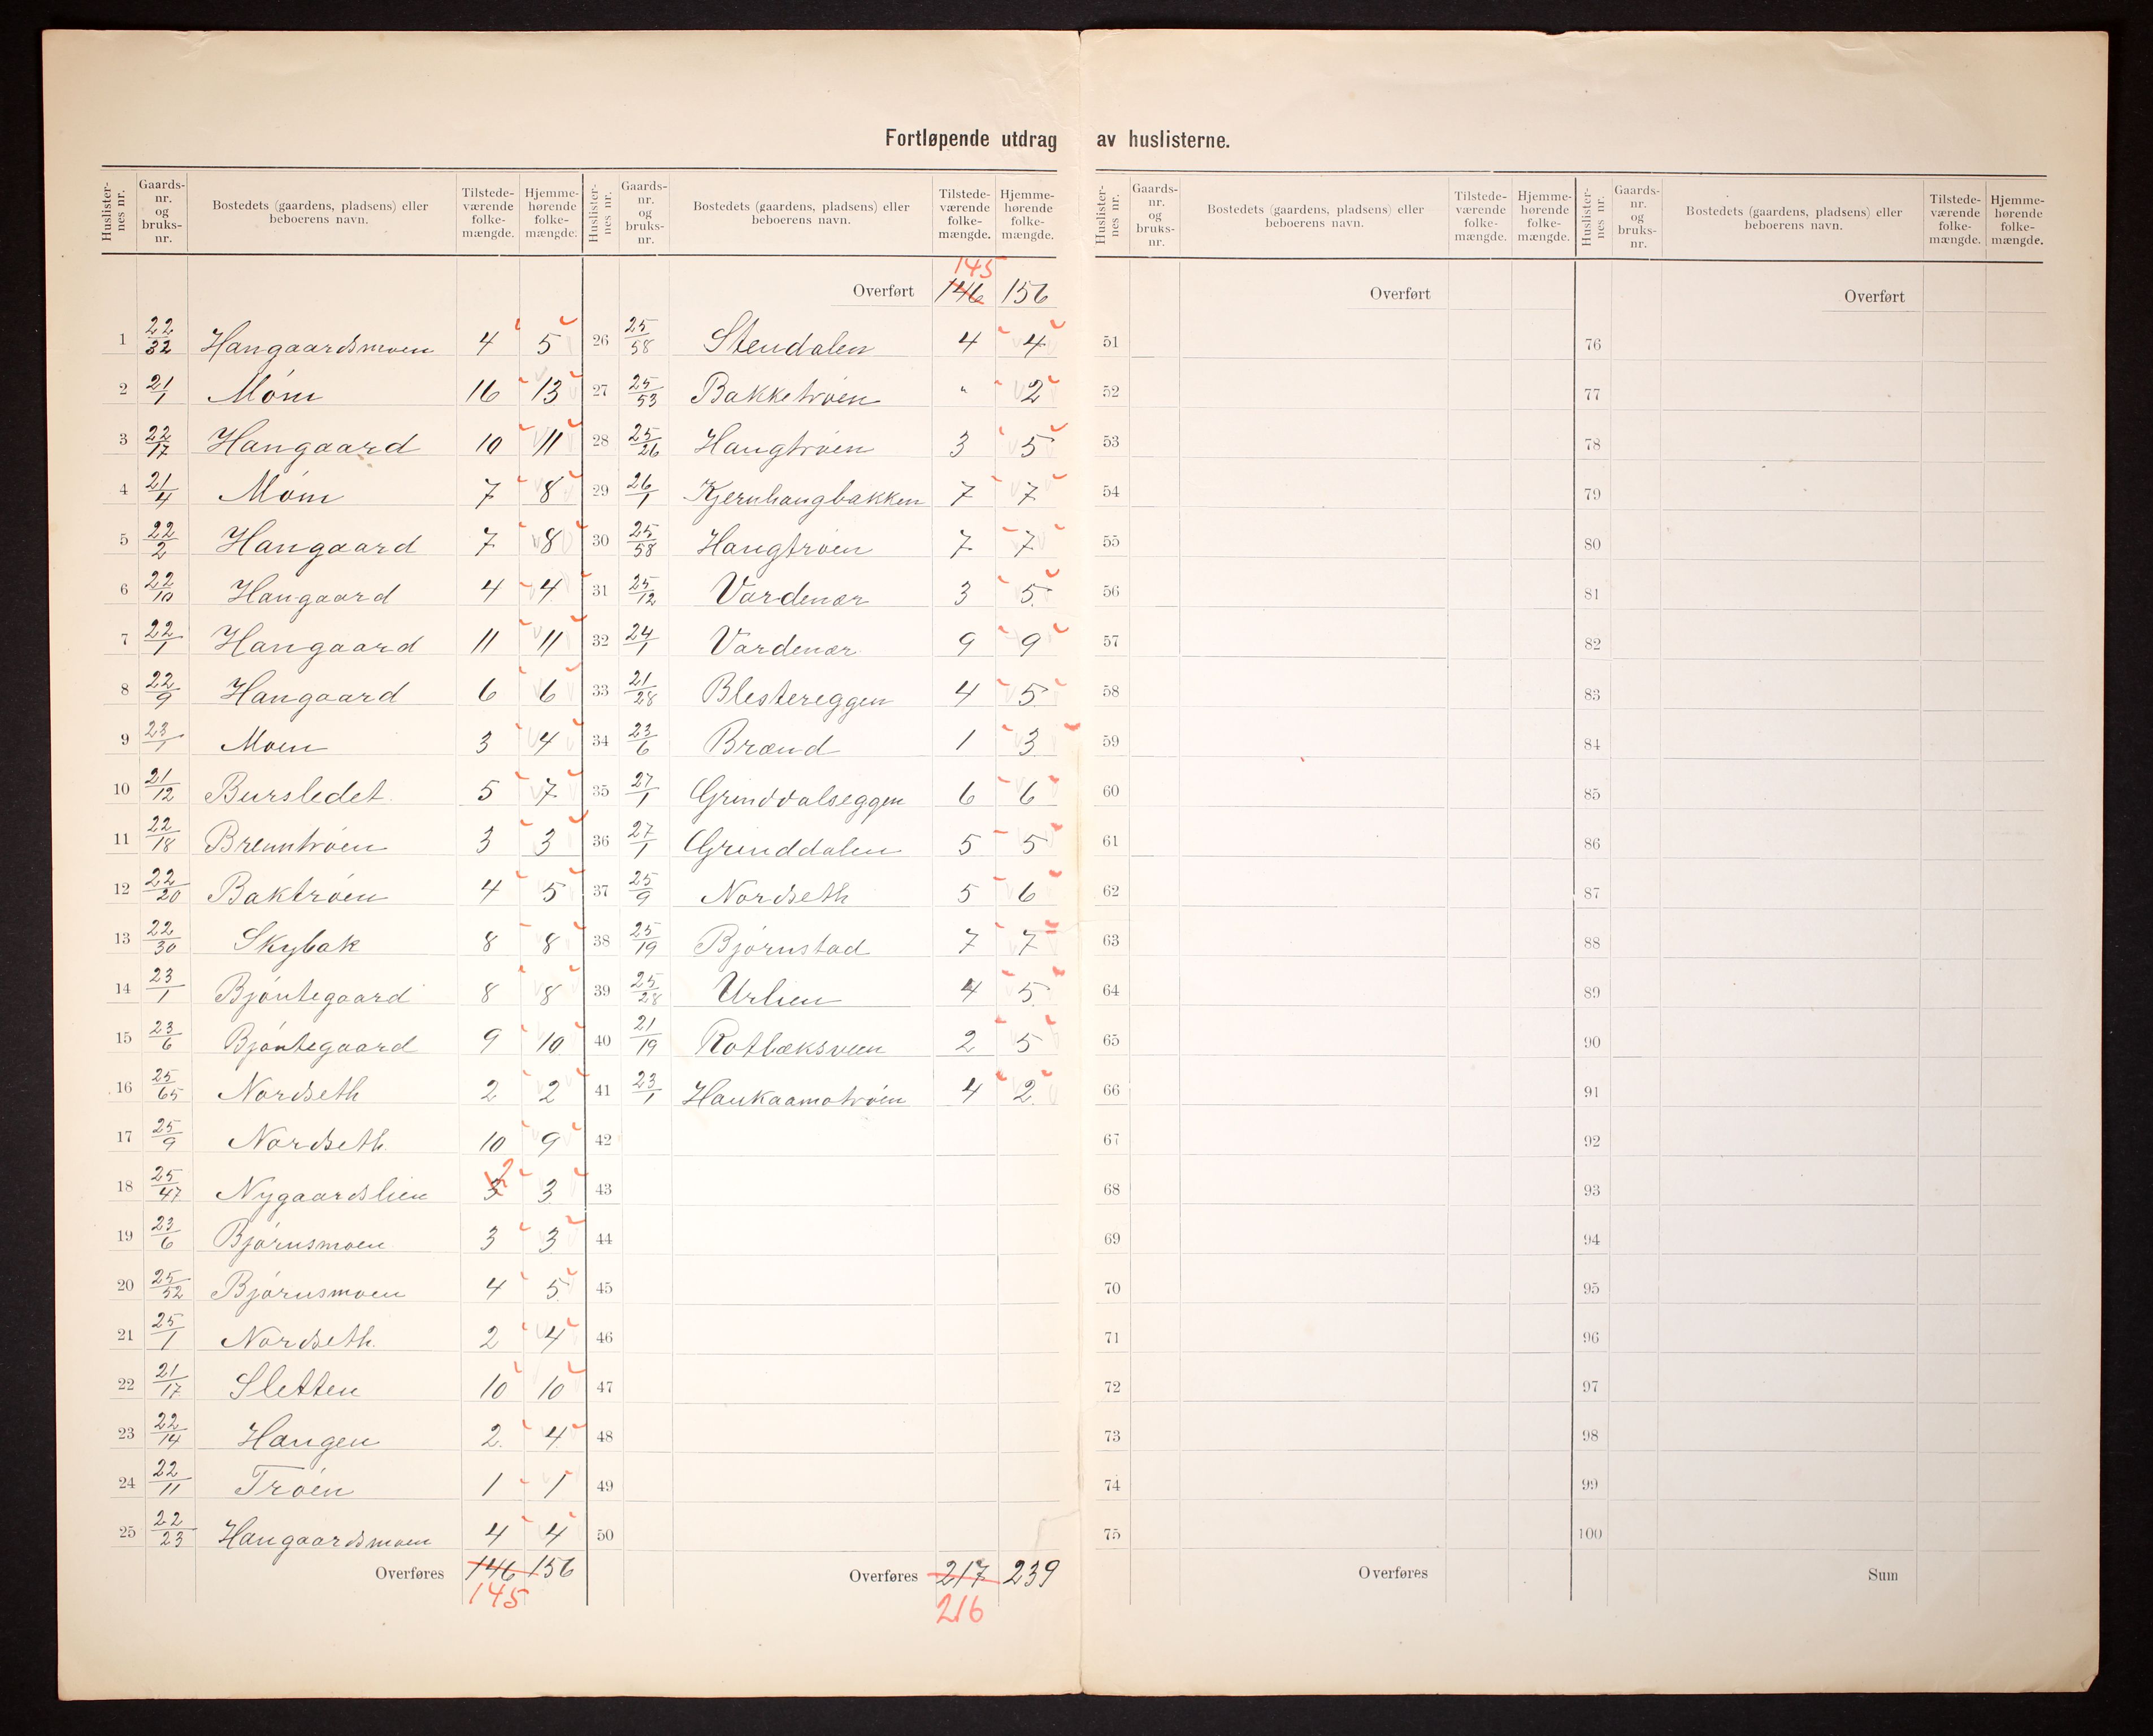 Fortløpende utdrag av huslisterne.
Huslister-nes nr. | Gaards-nr. og bruks-nr. | Bostedets (gaardens, pladsens) eller beboerens navn. | Tilstede-værende folke-mængde. | Hjemme-hørende folke-mængde.
1 22/32 Haugaardsmoen 4 5
2 21/1 Móm 16 13
3 22/17 Haugaard 10 11
4 21/4 Móm 7 8
5 22/2 Haugaard 7 8
6 22/10 Haugaard 4 4
7 22/1 Haugaard 11 11
8 22/9 Haugaard 6 6
9 23/1 Moen 3 4
10 21/12 Bursledet 5 7
11 22/18 Brenntróen 3 3
12 22/20 Baktróen 4 5
13 22/30 Skybak 8 8
14 23/1 Bjóntegaard 8 8
15 23/6 Bjóntegaard 9 10
16 25/65 Nordseth 2 2
17 25/9 Nordseth 10 9
18 25/47 Nygaardslien 3 2 3
19 23/6 Bjórnsmoen 3 3
20 25/52 Bjórnsmoen 4 5
21 25/1 Nordseth 2 4
22 21/17 Sletten 10 10
23 22/14 Haugen 2 4
24 22/11 Tróen 1 1
25 22/23 Haugaardsmoen 4 4
Overføres 146 156
145
Huslister-nes nr. | Gaards-nr. og bruks-nr. | Bostedets (gaardens, pladsens) eller beboerens navn. | Tilstede-værende folke-mængde. | Hjemme-hørende folke-mængde.
145
Overført 146 156
26 25/58 Stendalen 4 4
27 25/53 Bakketróen " 2
28 25/26 Haugtróen 3 5
29 26/1 Kjernhaugbakken 7 7
30 25/58 Haugtróen 7 7
31 25/12 Vardenær 3 5
32 24/1 Vardenær 9 9
33 21/28 Blestereggen 4 5
34 23/6 Brænd 1 3
35 27/1 Grinddalseggen 6 6
36 27/1 Grinddalen 5 5
37 25/9 Nordseth 5 6
38 25/19 Bjórnstad 7 7
39 25/28 Urlien 4 5
40 21/19 Rotbæksveen 2 5
41 23/1 Haukaamotróen 4 2
42
43
44
45
46
47
48
49
50
Overføres 217 239
216
Huslister-nes nr. | Gaards-nr. og bruks-nr. | Bostedets (gaardens, pladsens) eller beboerens navn. | Tilstede-værende folke-mængde. | Hjemme-hørende folke-mængde.
Overført
51
52
53
54
55
56
57
58
59
60
61
62
63
64
65
66
67
68
69
70
71
72
73
74
75
Overføres
Huslister-nes nr. | Gaards-nr. og bruks-nr. | Bostedets (gaardens, pladsens) eller beboerens navn. | Tilstede-værende folke-mængde. | Hjemme-hørende folke-mængde.
Overført
76
77
78
79
80
81
82
83
84
85
86
87
88
89
90
91
92
93
94
95
96
97
98
99
100
Sum